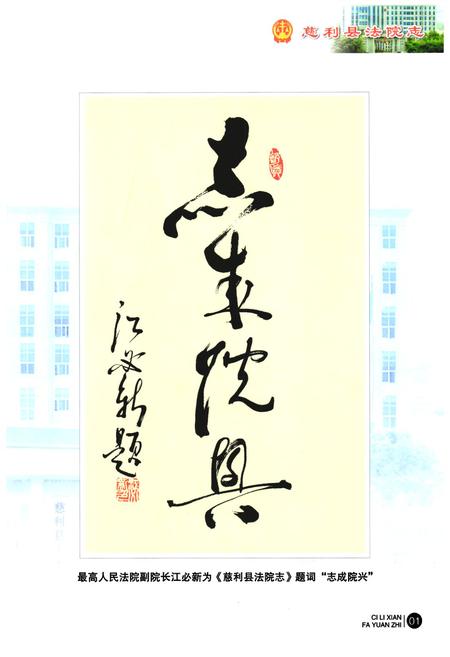 慈利县法院志
志成院兴
江必新题
慈利县
最高人民法院副院长江必新为《慈利县法院志》题词“志成院兴”
CI LI XIAN
FA YUAN ZHI 01